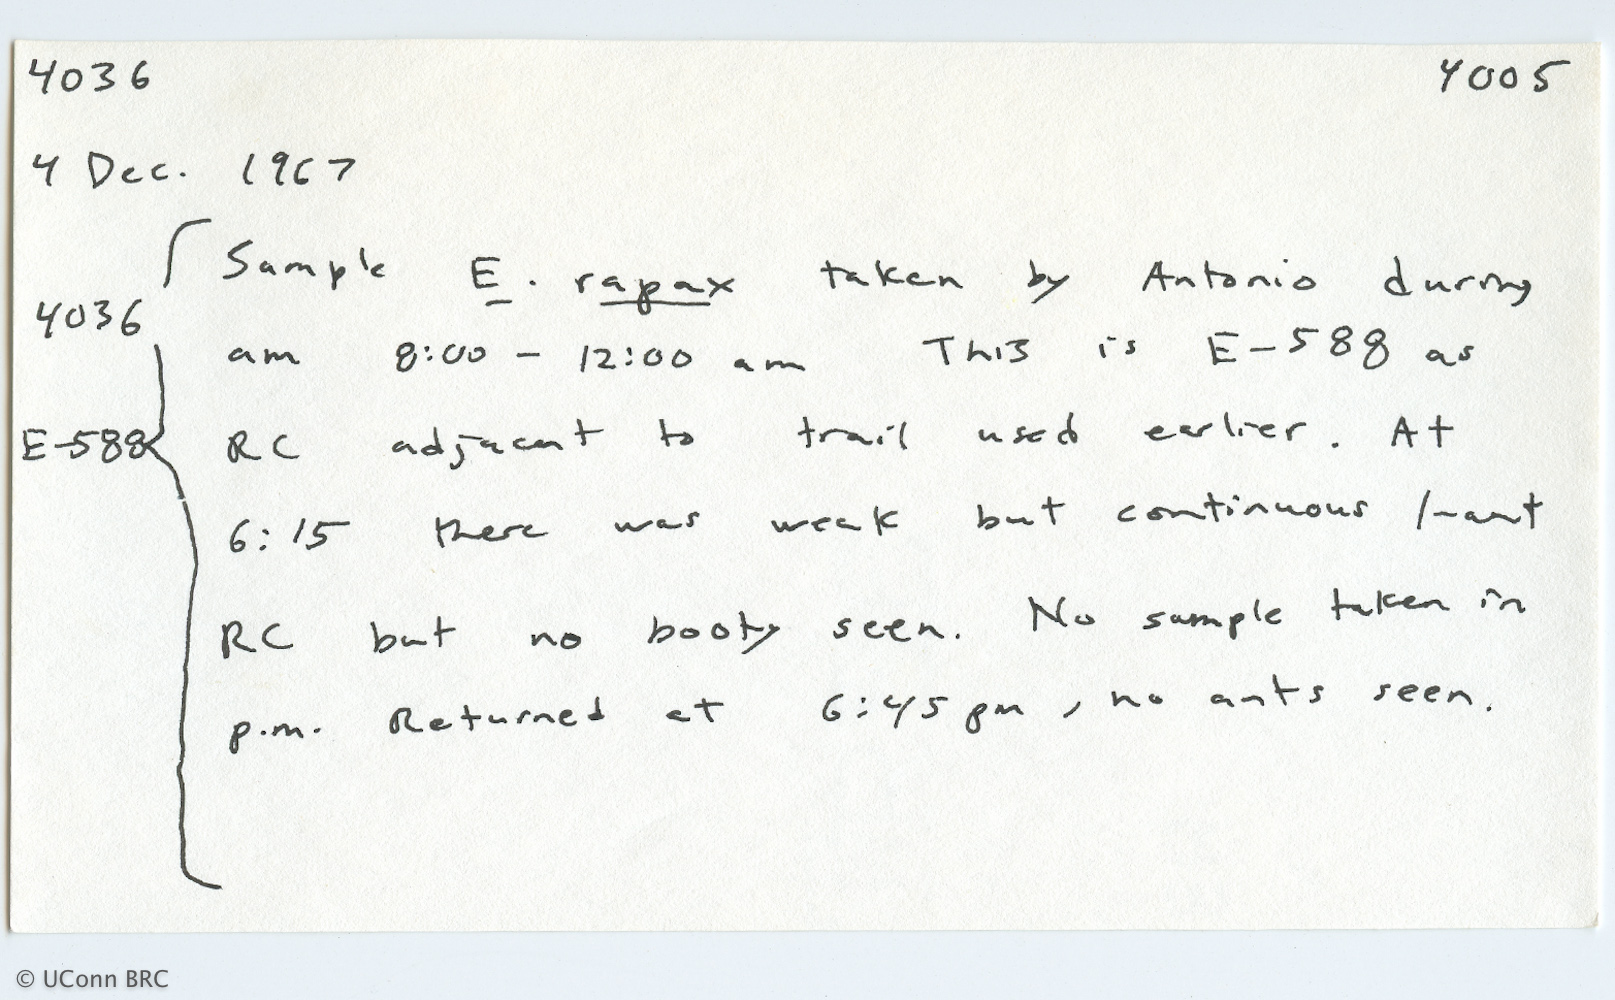 4036 4005
4 Dec. 1967
Sample E. rapax taken by Antonio during
4036
am 8:00 - 12:00 am This is E-588 as
E-588 RC adjacent to trail used earlier. At
6:15 there was weak but continuous 1-ant
RC but no booty seen. No sample taken in
p.m. Returned at 6:45 pm, no ants seen.
© UConn BRC